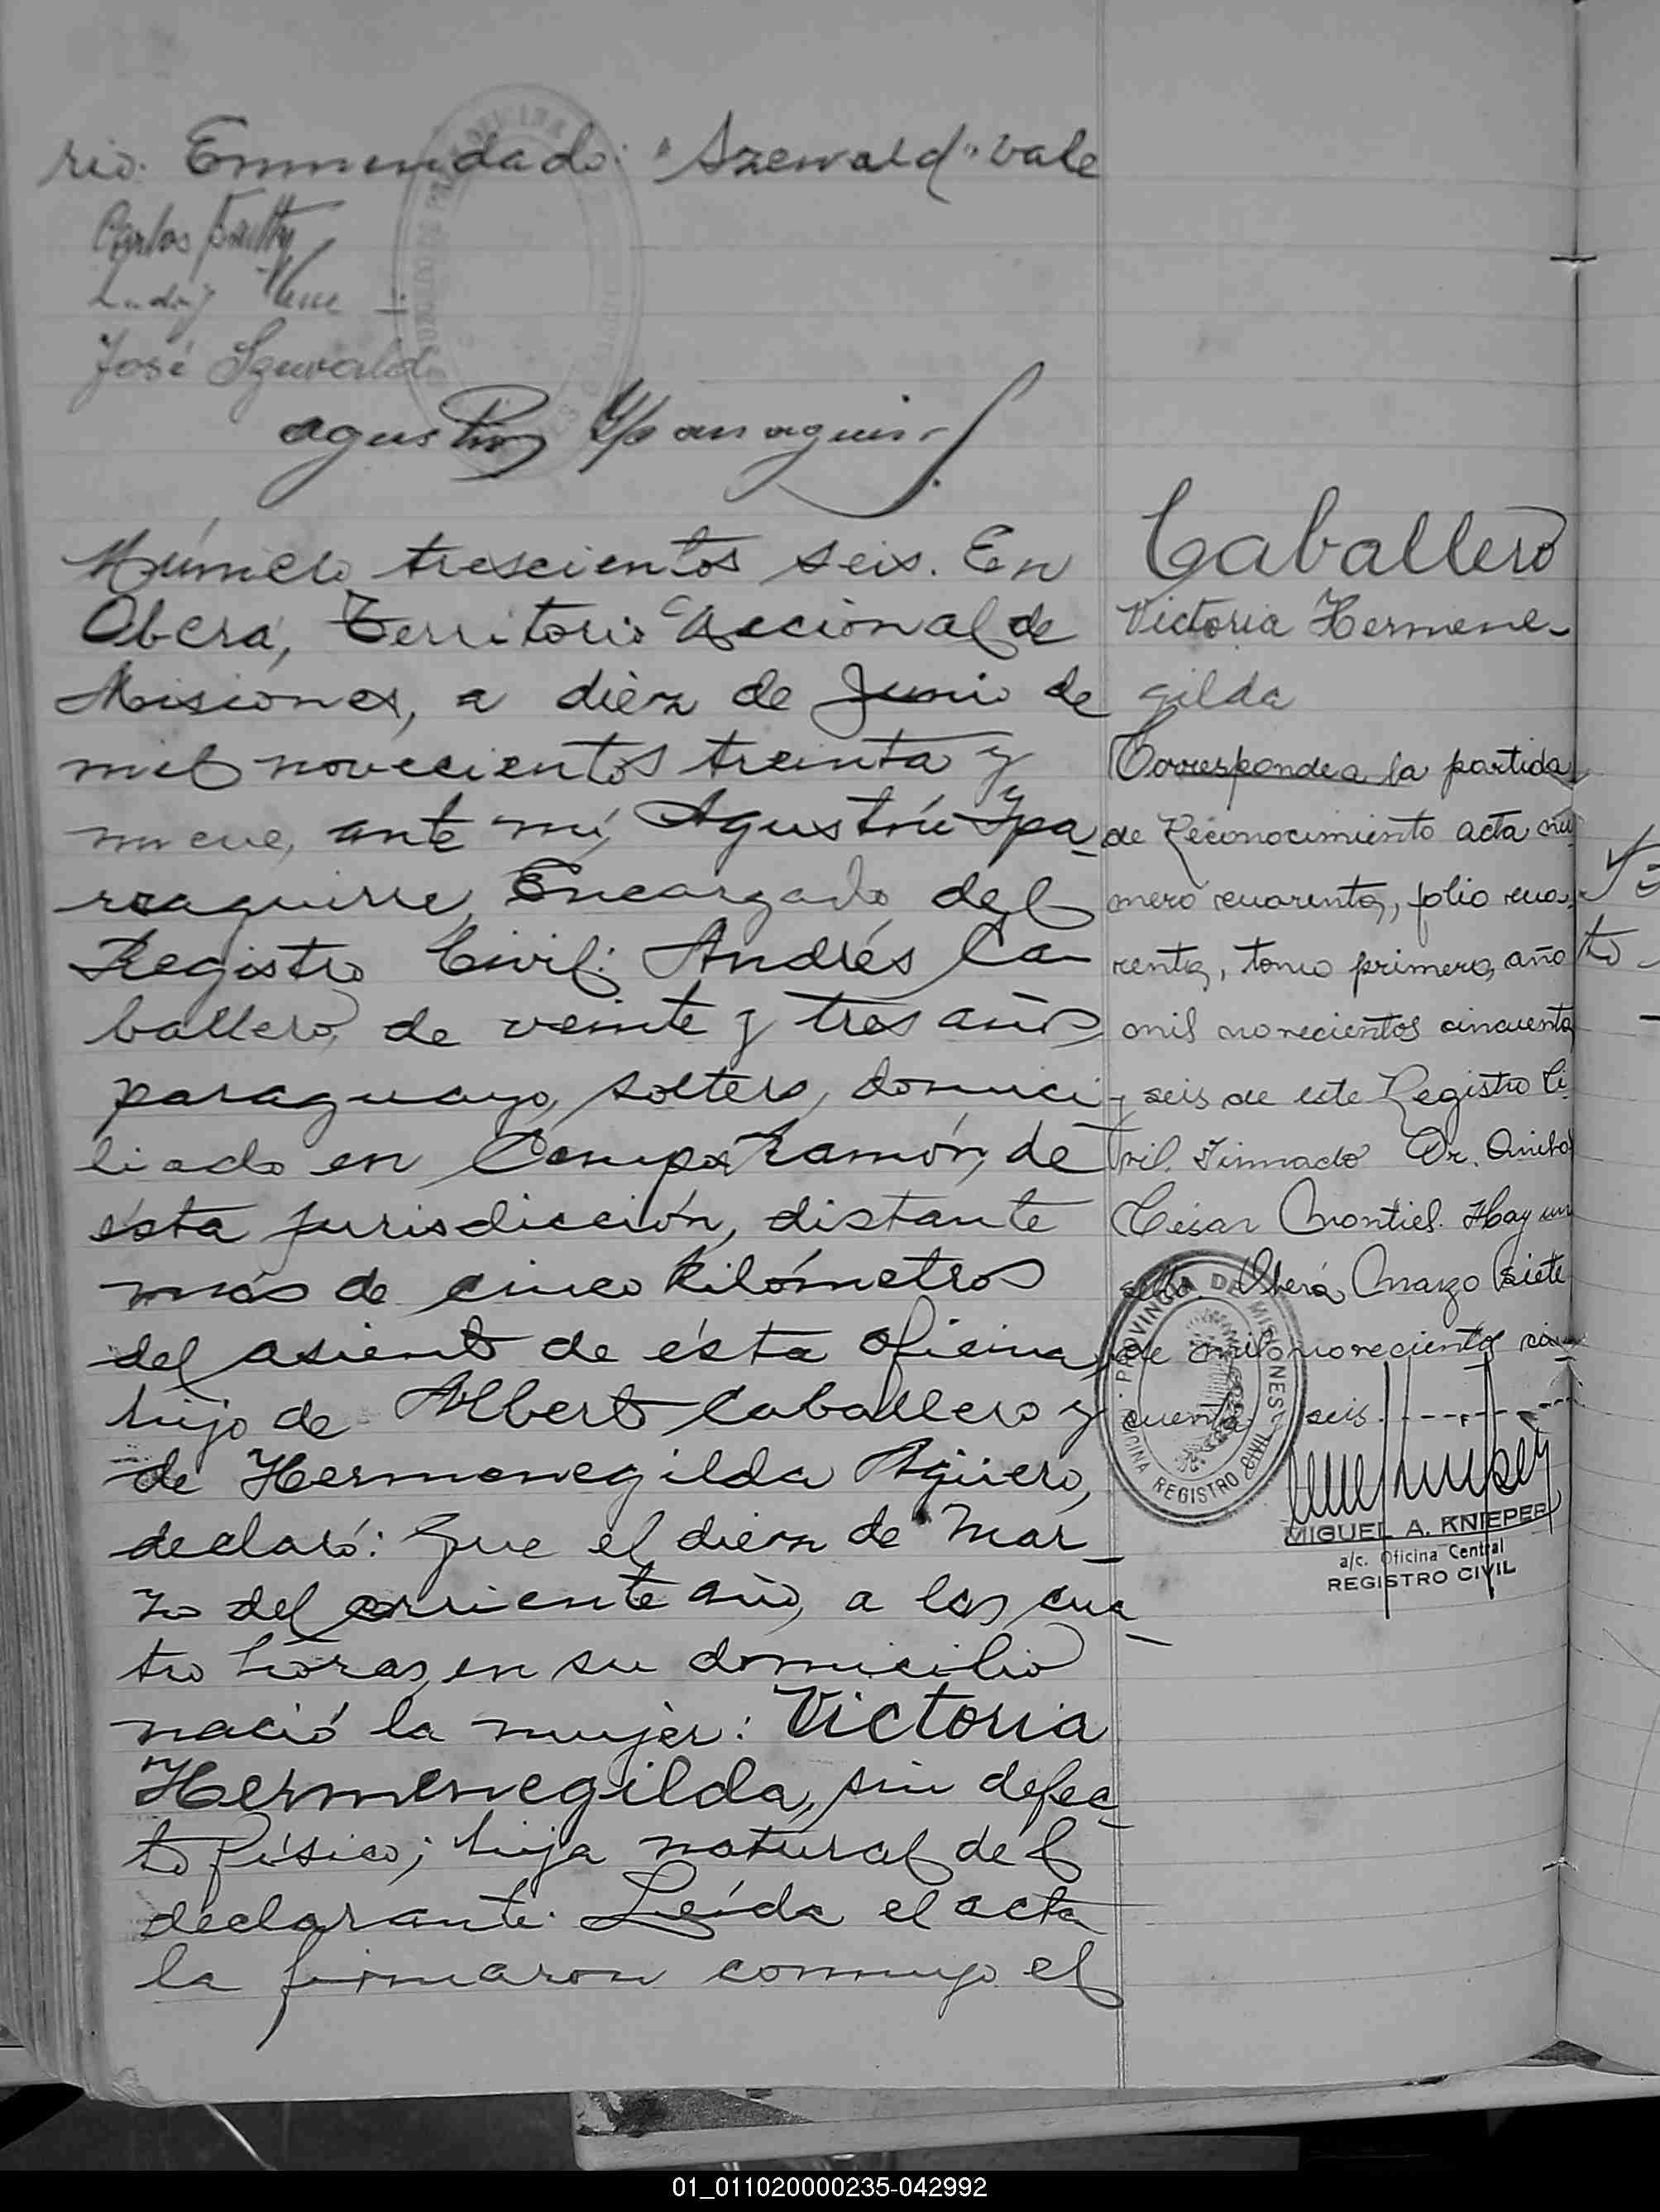 rio. Enmendado: "Szewald" vale
Carlos
José Szewald
Agustín Yparraguirre
Número trescientos seis. En
Oberá, Territorio Nacional de
Misiones, a diez de Junio de
mil novecientos treinta y
nueve, ante mí, Agustín Ypa-
rraguirre, Encargado del
Registro Civil: Andrés Ca-
ballero, de veinte y tres años
paraguayo, soltero, domici-
liado en Campo Ramón, de
ésta jurisdicción, distante
más de cinco kilómetros
del asiento de ésta oficina,
hijo de Alberto Caballero y
de Hermenegilda Agüero,
declaró: Que el diez de Mar-
zo del corriente año, a las cua-
tro horas, en su domicilio
nació la mujer: Victoria
Hermenegilda, sin defec-
to físico; hija natural del
declarante. Leída el acta
la firmaron conmigo el
Caballero
Victoria Hermene-
gilda
Corresponde a la partida
de Reconocimiento acta nú-
mero cuarenta, folio cua-
renta, tomo primero, año
mil novecientos cincuenta
y seis de este Registro Ci-
vil. Firmado Dr.
César Montiel. Hay un
sello Oberá Marzo siete
de mil novecientos cin-
cuenta seis
PROVINCIA DE MISIONES
OFICINA REGISTRO CIVIL
MIGUEL A. KNIEPER
a/c. Oficina Central
REGISTRO CIVIL
01_011020000235-042992